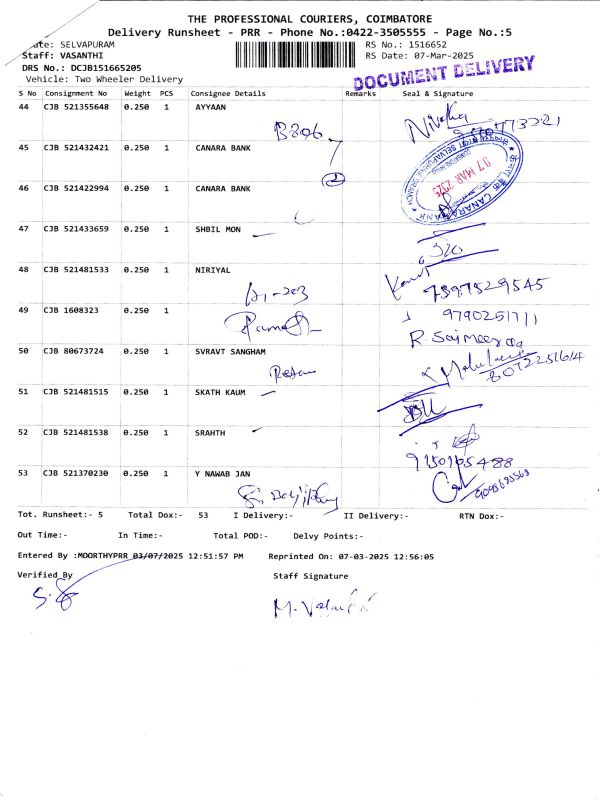 THE PROFESSIONAL COURIERS, COIMBATORE
Delivery Runsheet - PRR - Phone No.:0422-3505555 - Page No.:5
SELVAPURAM RS No.: 1516652
Staff: VASANTHI RS Date: 07-Mar-2025
DRS No.: DCJB151665205
DOCUMENT DELIVERY
Vehicle: Two Wheeler Delivery
S No Consignment No Weight PCS Consignee Details Remarks Seal & Signature
44 CJB 521355648 0.250 1 AYYAAN
B206
45 CJB 521432421 0.250 1 CANARA BANK
2
07 MAR 2025
46 CJB 521422994 0.250 1 CANARA BANK
47 CJB 521433659 0.250 1 SHBIL MON
48 CJB 521481533 0.250 1 NIRIYAL
7397529545
49 CJB 1608323 0.250 1
9790251711
50 CJB 80673724 0.250 1 SVRAVT SANGHAM
51 CJB 521481515 0.250 1 SKATH KAUM
52 CJB 521481538 0.250 1 SRAHTH
53 CJB 521370230 0.250 1 Y NAWAB JAN
Tot. Runsheet:- 5 Total Dox:- 53 I Delivery:- II Delivery:- RTN Dox:-
Out Time:- In Time:- Total POD:- Delvy Points:-
Entered By :MOORTHYPRR 03/07/2025 12:51:57 PM Reprinted On: 07-03-2025 12:56:05
Verified By Staff Signature